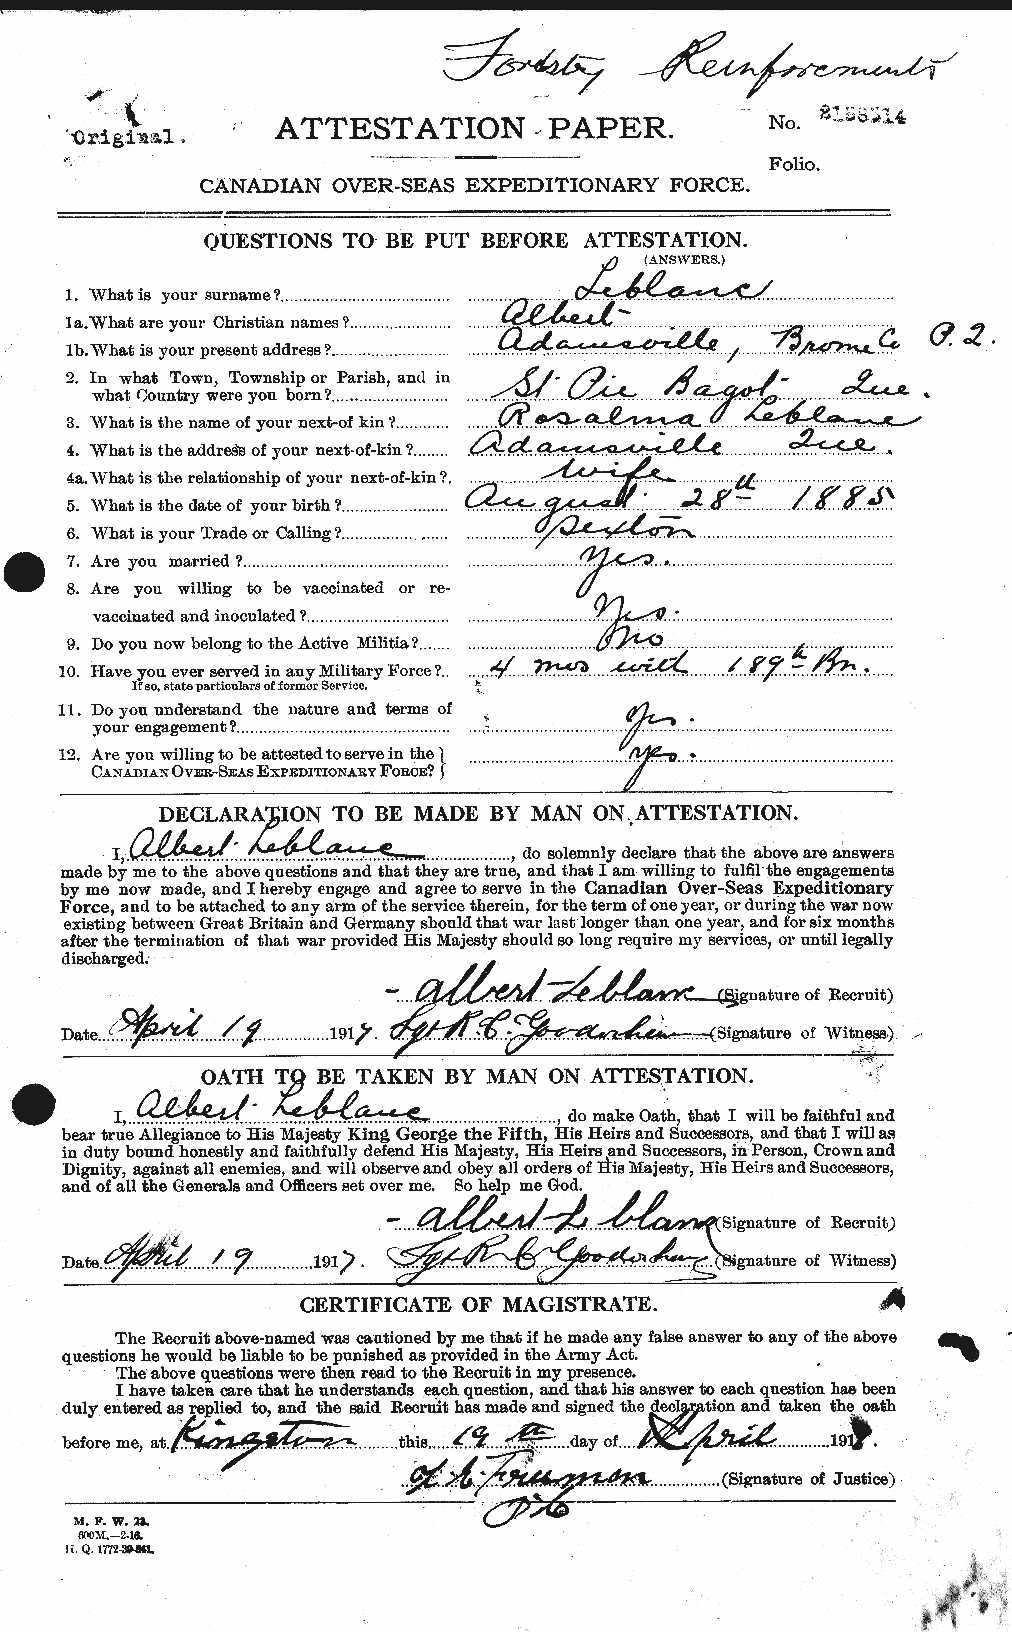 Forestry Reinforcements
Original.
ATTESTATION PAPER.
No.
Folio.
CANADIAN OVER-SEAS EXPEDITIONARY FORCE.
QUESTIONS TO BE PUT BEFORE ATTESTATION.
(ANSWERS.)
1. What is your surname? Leblanc
1a. What are your Christian names? Albert
1b. What is your present address? Adamsville, Brome Co P.Q.
2. In what Town, Township or Parish, and in
what Country were you born? St Pie Bagot Que.
3. What is the name of your next-of kin? Rosalma Leblanc
4. What is the address of your next-of-kin? Adamsville Que.
4a. What is the relationship of your next-of-kin? Wife
5. What is the date of your birth? August 28th 1885
6. What is your Trade or Calling? Sexton
7. Are you married? Yes.
8. Are you willing to be vaccinated or re-
vaccinated and inoculated? Yes.
9. Do you now belong to the Active Militia? No
10. Have you ever served in any Military Force? 4 mos with 189th Bn.
If so, state particulars of former Service.
11. Do you understand the nature and terms of
your engagement? Yes.
12. Are you willing to be attested to serve in the
CANADIAN OVER-SEAS EXPEDITIONARY FORCE? Yes.
DECLARATION TO BE MADE BY MAN ON ATTESTATION.
I, Albert Leblanc, do solemnly declare that the above are answers
made by me to the above questions and that they are true, and that I am willing to fulfil the engagements
by me now made, and I hereby engage and agree to serve in the Canadian Over-Seas Expeditionary
Force, and to be attached to any arm of the service therein, for the term of one year, or during the war now
existing between Great Britain and Germany should that war last longer than one year, and for six months
after the termination of that war provided His Majesty should so long require my services, or until legally
discharged.
Albert Leblanc (Signature of Recruit)
Date April 19 1917. Sgt R. C. Gooderham (Signature of Witness)
OATH TO BE TAKEN BY MAN ON ATTESTATION.
I, Albert Leblanc, do make Oath, that I will be faithful and
bear true Allegiance to His Majesty King George the Fifth, His Heirs and Successors, and that I will as
in duty bound honestly and faithfully defend His Majesty, His Heirs and Successors, in Person, Crown and
Dignity, against all enemies, and will observe and obey all orders of His Majesty, His Heirs and Successors,
and of all the Generals and Officers set over me. So help me God.
Albert Leblanc (Signature of Recruit)
Date April 19 1917. Sgt R C Gooderham (Signature of Witness)
CERTIFICATE OF MAGISTRATE.
The Recruit above-named was cautioned by me that if he made any false answer to any of the above
questions he would be liable to be punished as provided in the Army Act.
The above questions were then read to the Recruit in my presence.
I have taken care that he understands each question, and that his answer to each question has been
duly entered as replied to, and the said Recruit has made and signed the declaration and taken the oath
before me, at Kingston this 19th day of April 191.
Freeman (Signature of Justice)
M. F. W. 23.
600M.—2-16.
H. Q. 1772-39-841.